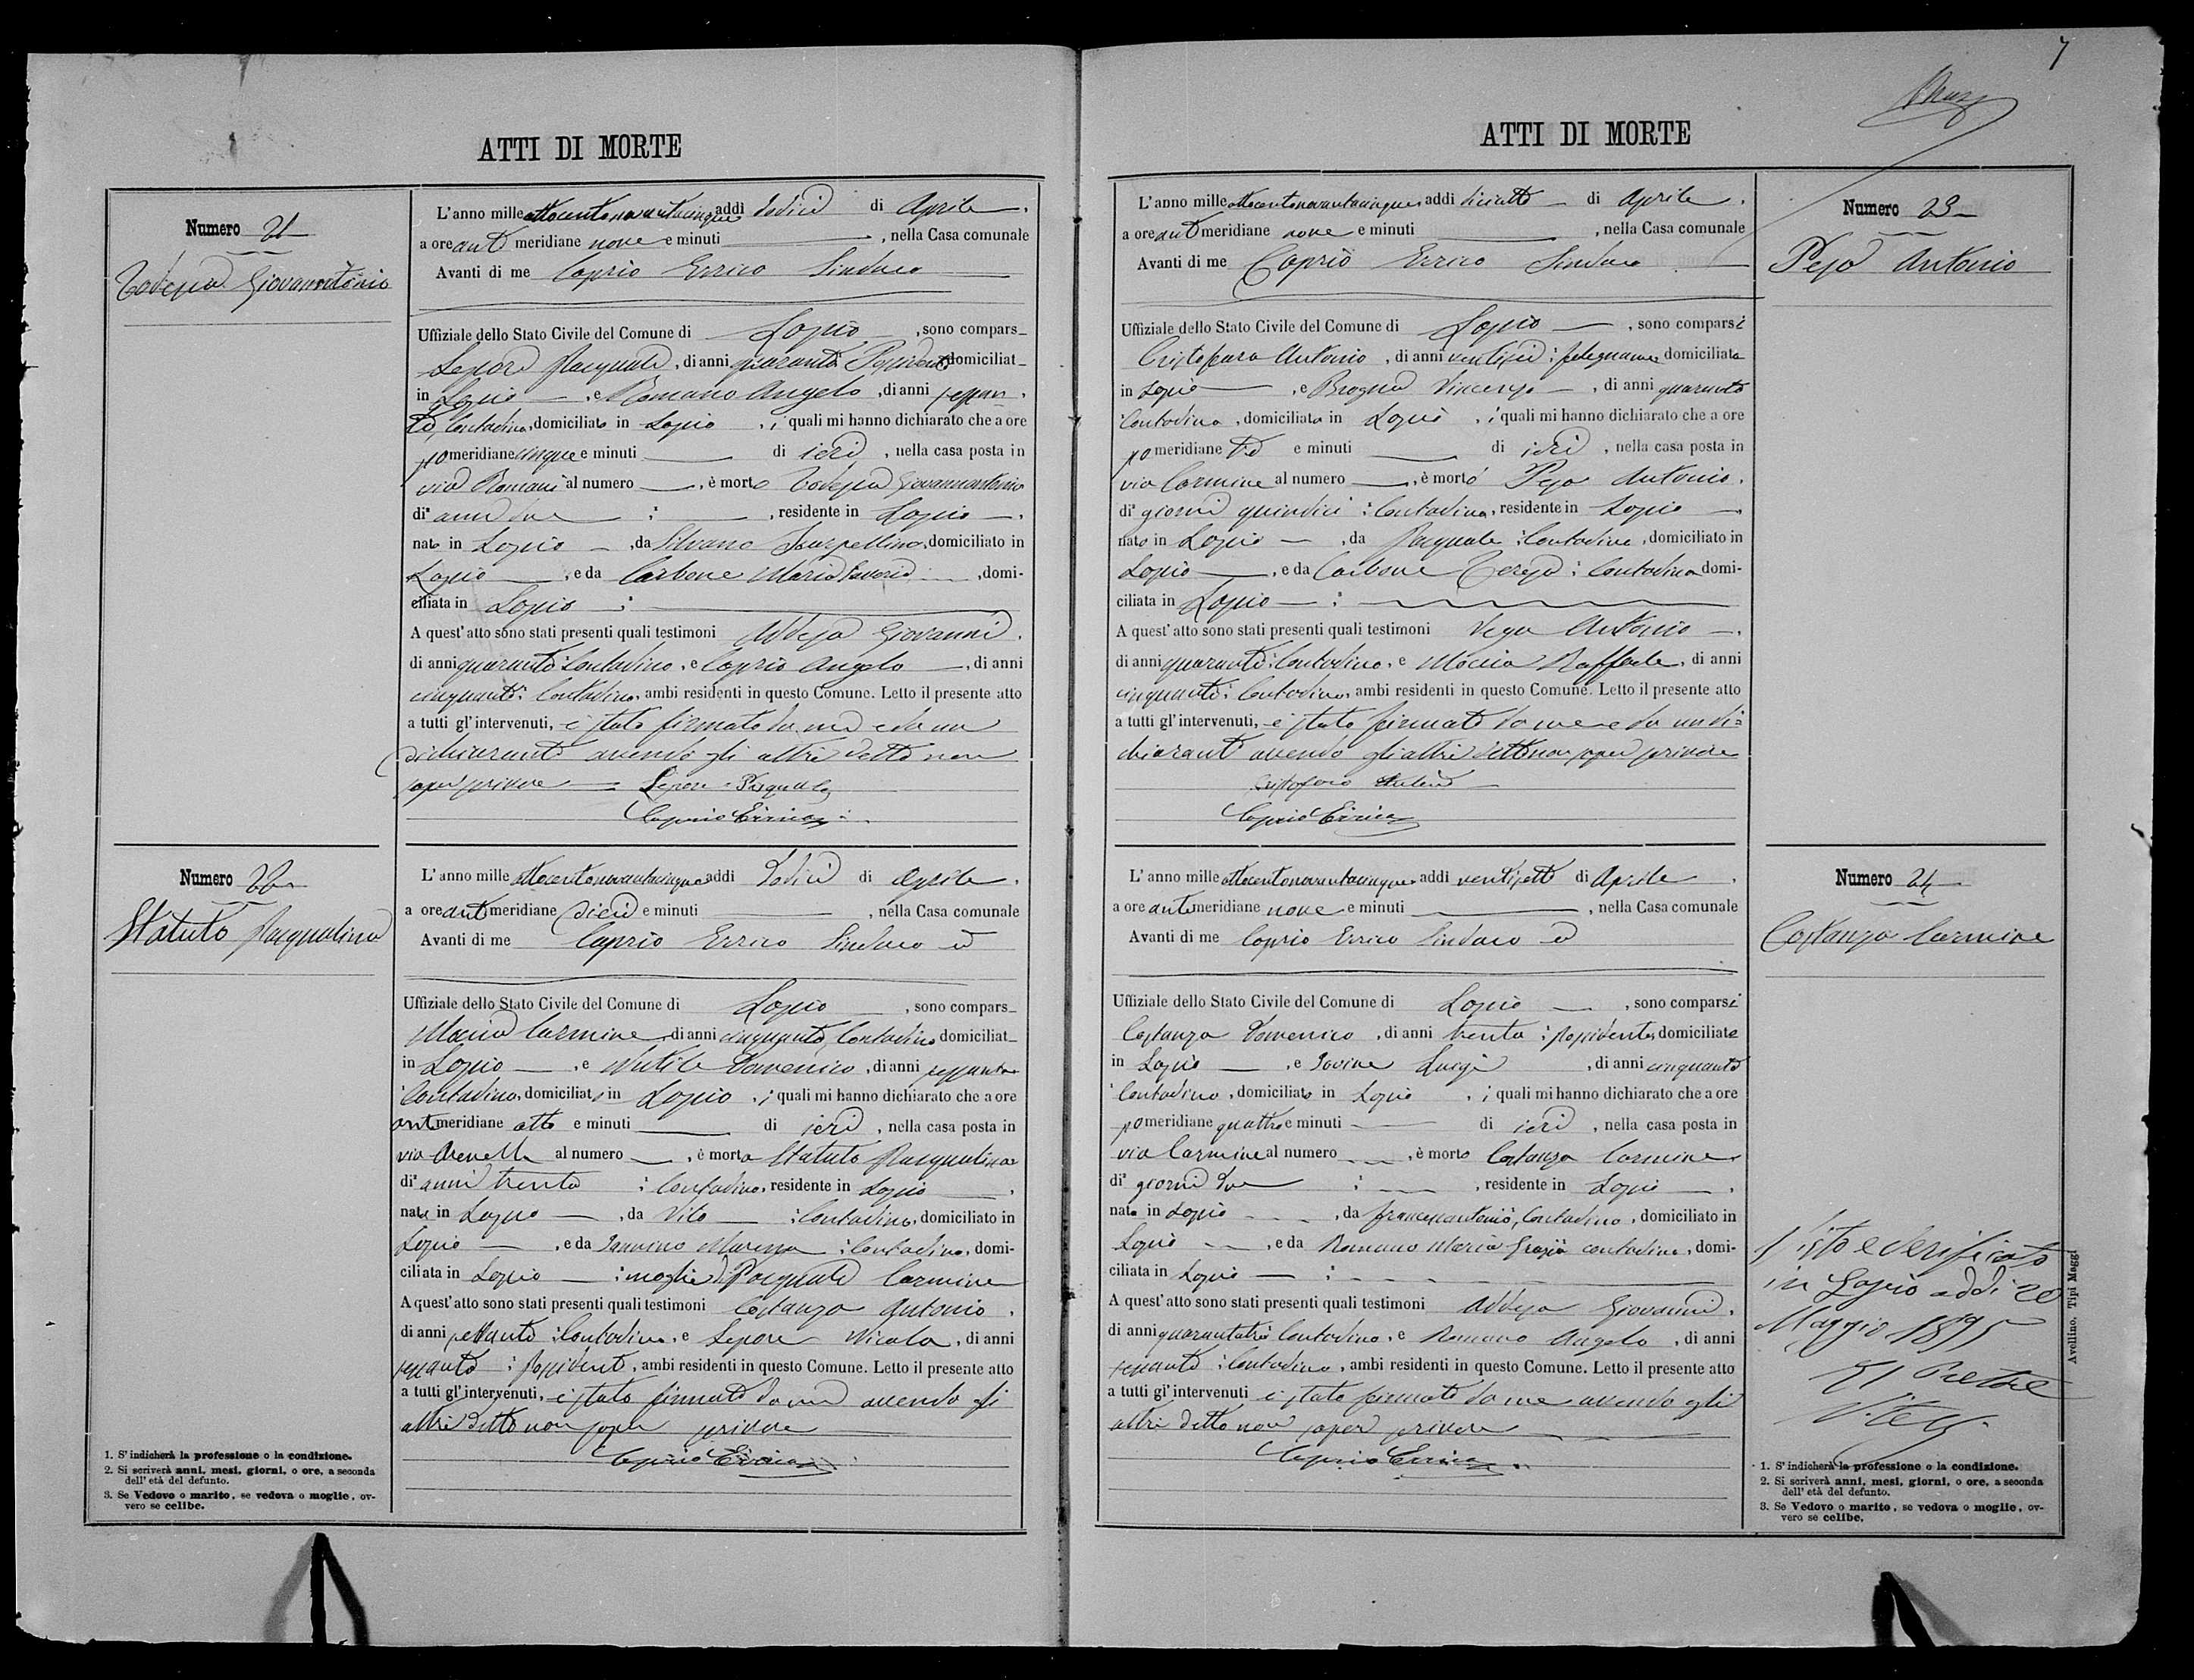 ATTI DI MORTE
Numero 21
Giovannantonio
L'anno mille ottocentonovantacinque addì dodici di Aprile,
a ore anti meridiane nove e minuti , nella Casa comunale
Avanti di me Caprio Errico Sindaco
Uffiziale dello Stato Civile del Comune di Lapio, sono compars_
Lepore Pasquale, di anni quaranta Possidente domiciliat_
in Lapio, e Romano Angelo, di anni sessan-
ta, Contadino, domiciliato in Lapio, i quali mi hanno dichiarato che a ore
pomeridiane cinque e minuti di ieri, nella casa posta in
via Romani al numero , è morto Giovannantonio
di² anni due : , residente in Lapio,
nato in Lapio, da Silvano Scarpellino, domiciliato in
Lapio, e da Carbone Maria Saveria, domi-
ciliata in Lapio :
A quest'atto sono stati presenti quali testimoni Addesa Giovanni,
di anni quaranta: Contadino, e Caprio Angelo, di anni
cinquanta: Contadino, ambi residenti in questo Comune. Letto il presente atto
a tutti gl'intervenuti, è stato firmato da me e da un
dichiarante avendo gli altri detto non
saper scrivere Lepore Pasquale
Caprio Errico
Numero 22
Statuto Pasqualina
L'anno mille ottocentonovantacinque addì dodici di Aprile,
a ore anti meridiane dieci e minuti , nella Casa comunale
Avanti di me Caprio Errico Sindaco
Uffiziale dello Stato Civile del Comune di Lapio, sono compars_
Carmine, di anni cinquanta, Contadino domiciliat_
in Lapio, e Mutile Domenico, di anni sessanta
: Contadino, domiciliato in Lapio, i quali mi hanno dichiarato che a ore
antimeridiane otto e minuti di ieri, nella casa posta in
via al numero , è morta Statuto Pasqualina
di² anni trenta : Contadina, residente in Lapio,
nata in Lapio, da Vito : Contadino, domiciliato in
Lapio, e da : Contadina, domi-
ciliata in Lapio : moglie di Pasquale Carmine
A quest'atto sono stati presenti quali testimoni Costanza Antonio,
di anni settanta : Contadino, e Lepore Nicola, di anni
sessanta : Possidente, ambi residenti in questo Comune. Letto il presente atto
a tutti gl'intervenuti, è stato firmato da me avendo gli
altri detto non saper scrivere
Caprio Errico
1. S'indicherà la professione o la condizione.
2. Si scriverà anni, mesi, giorni, o ore, a seconda
dell'età del defunto.
3. Se Vedovo o marito, se vedova o moglie, ov-
vero se celibe.
7
ATTI DI MORTE
L'anno mille ottocentonovantacinque addì diciotto di Aprile,
a ore anti meridiane nove e minuti , nella Casa comunale
Avanti di me Caprio Errico Sindaco
Uffiziale dello Stato Civile del Comune di Lapio, sono comparsi
Cristofaro Antonio, di anni ventisei : falegname domiciliato
in Lapio, e Brogna Vincenzo, di anni quaranta
: Contadino, domiciliato in Lapio, i quali mi hanno dichiarato che a ore
pomeridiane tre e minuti di ieri, nella casa posta in
via Carmine al numero , è morto Pesa Antonio,
di² giorni quindici : Contadino, residente in Lapio,
nato in Lapio, da Pasquale : Contadino, domiciliato in
Lapio, e da Carbone Teresa : Contadina domi-
ciliata in Lapio :
A quest'atto sono stati presenti quali testimoni Antonio,
di anni quaranta: Contadino, e Raffaele, di anni
cinquanta : Contadino, ambi residenti in questo Comune. Letto il presente atto
a tutti gl'intervenuti, è stato firmato da me e da un di=
chiarante avendo gli altri detto non saper scrivere
Cristofaro Antonio
Caprio Errico
Numero 23
Pesa Antonio
L'anno mille ottocentonovantacinque addì ventisette di Aprile,
a ore antimeridiane nove e minuti , nella Casa comunale
Avanti di me Caprio Errico Sindaco
Uffiziale dello Stato Civile del Comune di Lapio, sono comparsi
Costanza Domenico, di anni trenta : possidente, domiciliato
in Lapio, e Iovine Luigi, di anni cinquanta
: Contadino, domiciliato in Lapio, i quali mi hanno dichiarato che a ore
pomeridiane quattro e minuti di ieri, nella casa posta in
via Carmine al numero , è morto Costanza Carmine
di² giorni due : , residente in Lapio,
nato in Lapio, da Francescantonio, Contadino, domiciliato in
Lapio, e da Romano Maria Grazia contadina, domi-
ciliata in Lapio :
A quest'atto sono stati presenti quali testimoni Addesa Giovanni,
di anni quarantatre Contadino, e Romano Angelo, di anni
sessanta : Contadino, ambi residenti in questo Comune. Letto il presente atto
a tutti gl'intervenuti è stato firmato da me avendo gli
altri detto non saper scrivere
Caprio Errico
Numero 24
Costanza Carmine
Visto e verificato
in Lapio addì 20
Maggio 1895
Il Pretore
1. S'indicherà la professione o la condizione.
2. Si scriverà anni, mesi, giorni, o ore, a seconda
dell'età del defunto.
3. Se Vedovo o marito, se vedova o moglie, ov-
vero se celibe.
Avellino. Tipi Maggi